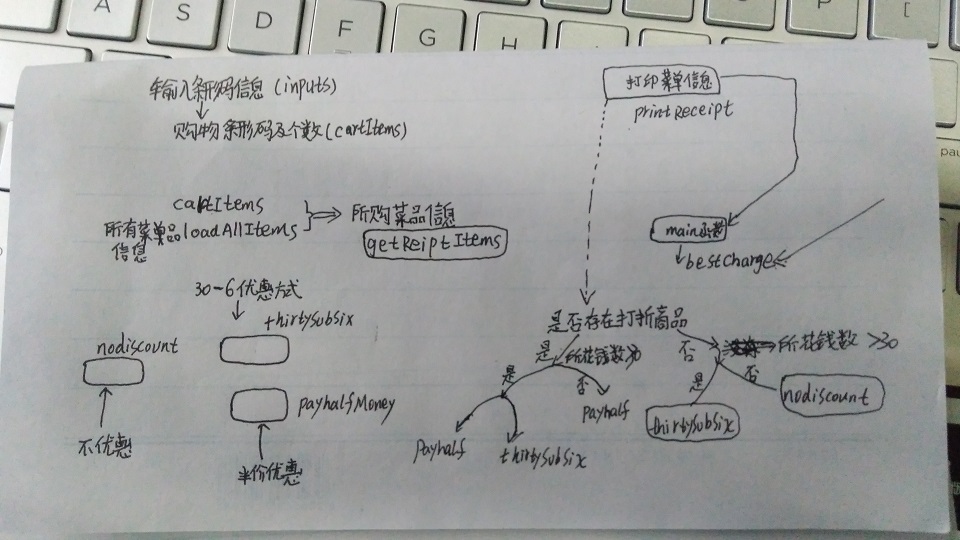 A
S
D
F
G
H
P
[
pau
输入条形码信息 (inputs)
购物条形码及个数 (cartItems)
cartItems
所有菜单品 loadAllItems
信息
所购菜品信息
getReiptItems
30-6优惠方式
thirtysubsix
nodiscount
payhalfMoney
不优惠
半价优惠
打印菜单信息
printReceipt
main函数
bestcharge
是否存在打折商品
是
所花钱数>30
否
所花钱数 >30
是
否
是
否
payhalf
nodiscount
thirtysubsix
payhalf
thirtysubsix